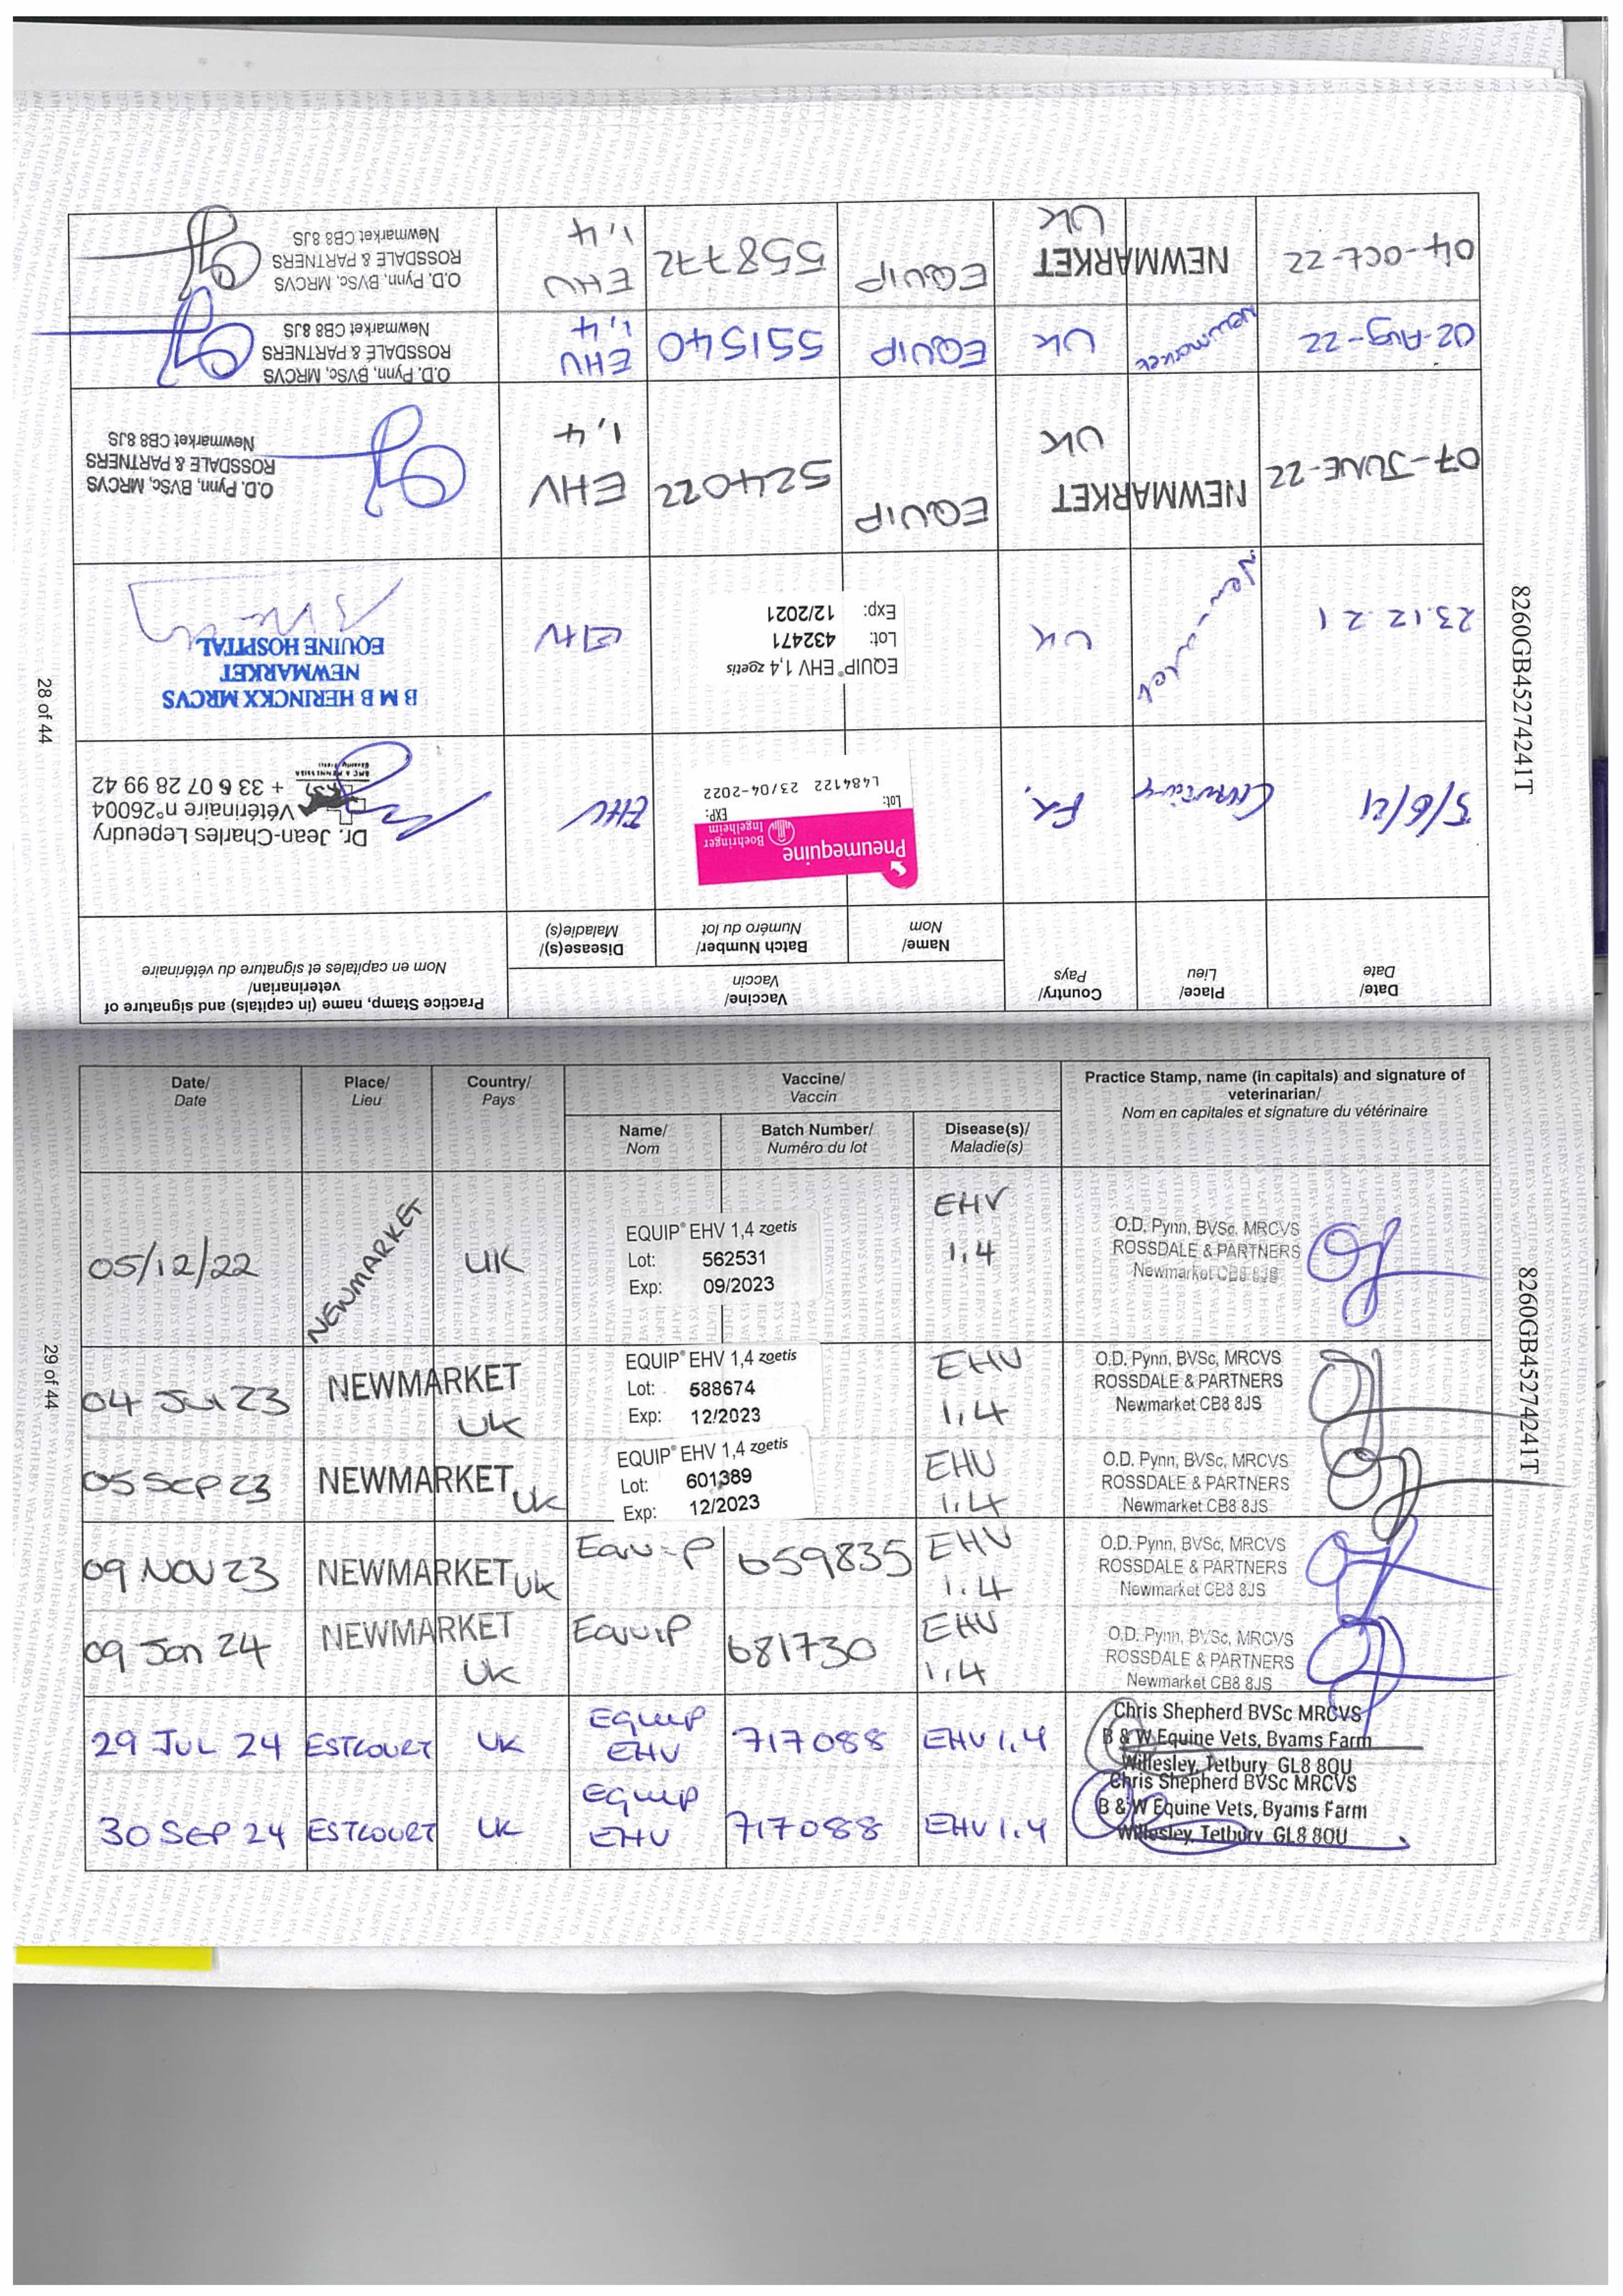 28 of 44
8260GB45274241T
Date/ Place/ Country/ Vaccine/ Practice Stamp, name (in capitals) and signature of
Date Lieu Pays Vaccin veterinarian/
Nom en capitales et signature du vétérinaire
Name/ Batch Number/ Disease(s)/
Nom Numéro du lot Maladie(s)
5/6/21 Fr. EHV
Pneumequine
Boehringer
Ingelheim
Lot: EXP:
L484122 23/04-2022
Dr. Jean-Charles Lepeudry
Vétérinaire n°26004
+ 33 6 07 28 99 42
23.12.21 UK EHV
EQUIP® EHV 1,4 zoetis
Lot: 432471
Exp: 12/2021
B M B HERINCKX MRCVS
NEWMARKET
EQUINE HOSPITAL
07-JUNE-22 NEWMARKET EQUIP 524022 EHV
UK 1,4
O.D. Pynn, BVSc, MRCVS
ROSSDALE & PARTNERS
Newmarket CB8 8JS
02-Aug-22 Newmarket UK EQUIP 551540 EHV
1,4
O.D. Pynn, BVSc, MRCVS
ROSSDALE & PARTNERS
Newmarket CB8 8JS
04-OCT-22 NEWMARKET EQUIP 558772 EHV
UK 1,4
O.D. Pynn, BVSc, MRCVS
ROSSDALE & PARTNERS
Newmarket CB8 8JS
29 of 44
8260GB45274241T
Date/ Place/ Country/ Vaccine/ Practice Stamp, name (in capitals) and signature of
Date Lieu Pays Vaccin veterinarian/
Nom en capitales et signature du vétérinaire
Name/ Batch Number/ Disease(s)/
Nom Numéro du lot Maladie(s)
05/12/22 NEWMARKET UK EHV
1,4
EQUIP® EHV 1,4 zoetis
Lot: 562531
Exp: 09/2023
O.D. Pynn, BVSc, MRCVS
ROSSDALE & PARTNERS
Newmarket CB8 8JS
04 Jul 23 NEWMARKET EHV
UK 1,4
EQUIP® EHV 1,4 zoetis
Lot: 588674
Exp: 12/2023
O.D. Pynn, BVSc, MRCVS
ROSSDALE & PARTNERS
Newmarket CB8 8JS
05 SEP 23 NEWMARKET UK EHV
1,4
EQUIP® EHV 1,4 zoetis
Lot: 601389
Exp: 12/2023
O.D. Pynn, BVSc, MRCVS
ROSSDALE & PARTNERS
Newmarket CB8 8JS
09 NOV 23 NEWMARKET UK Equip 659835 EHV
1.4
O.D. Pynn, BVSc, MRCVS
ROSSDALE & PARTNERS
Newmarket CB8 8JS
09 Jan 24 NEWMARKET Equip 681730 EHV
UK 1,4
O.D. Pynn, BVSc, MRCVS
ROSSDALE & PARTNERS
Newmarket CB8 8JS
29 JUL 24 ESTCOURT UK Equip 717088 EHV 1,4
EHV
Chris Shepherd BVSc MRCVS
B & W Equine Vets, Byams Farm
Willesley, Tetbury GL8 8QU
30 SEP 24 ESTCOURT UK Equip 717088 EHV 1,4
EHV
Chris Shepherd BVSc MRCVS
B & W Equine Vets, Byams Farm
Willesley, Tetbury GL8 8QU